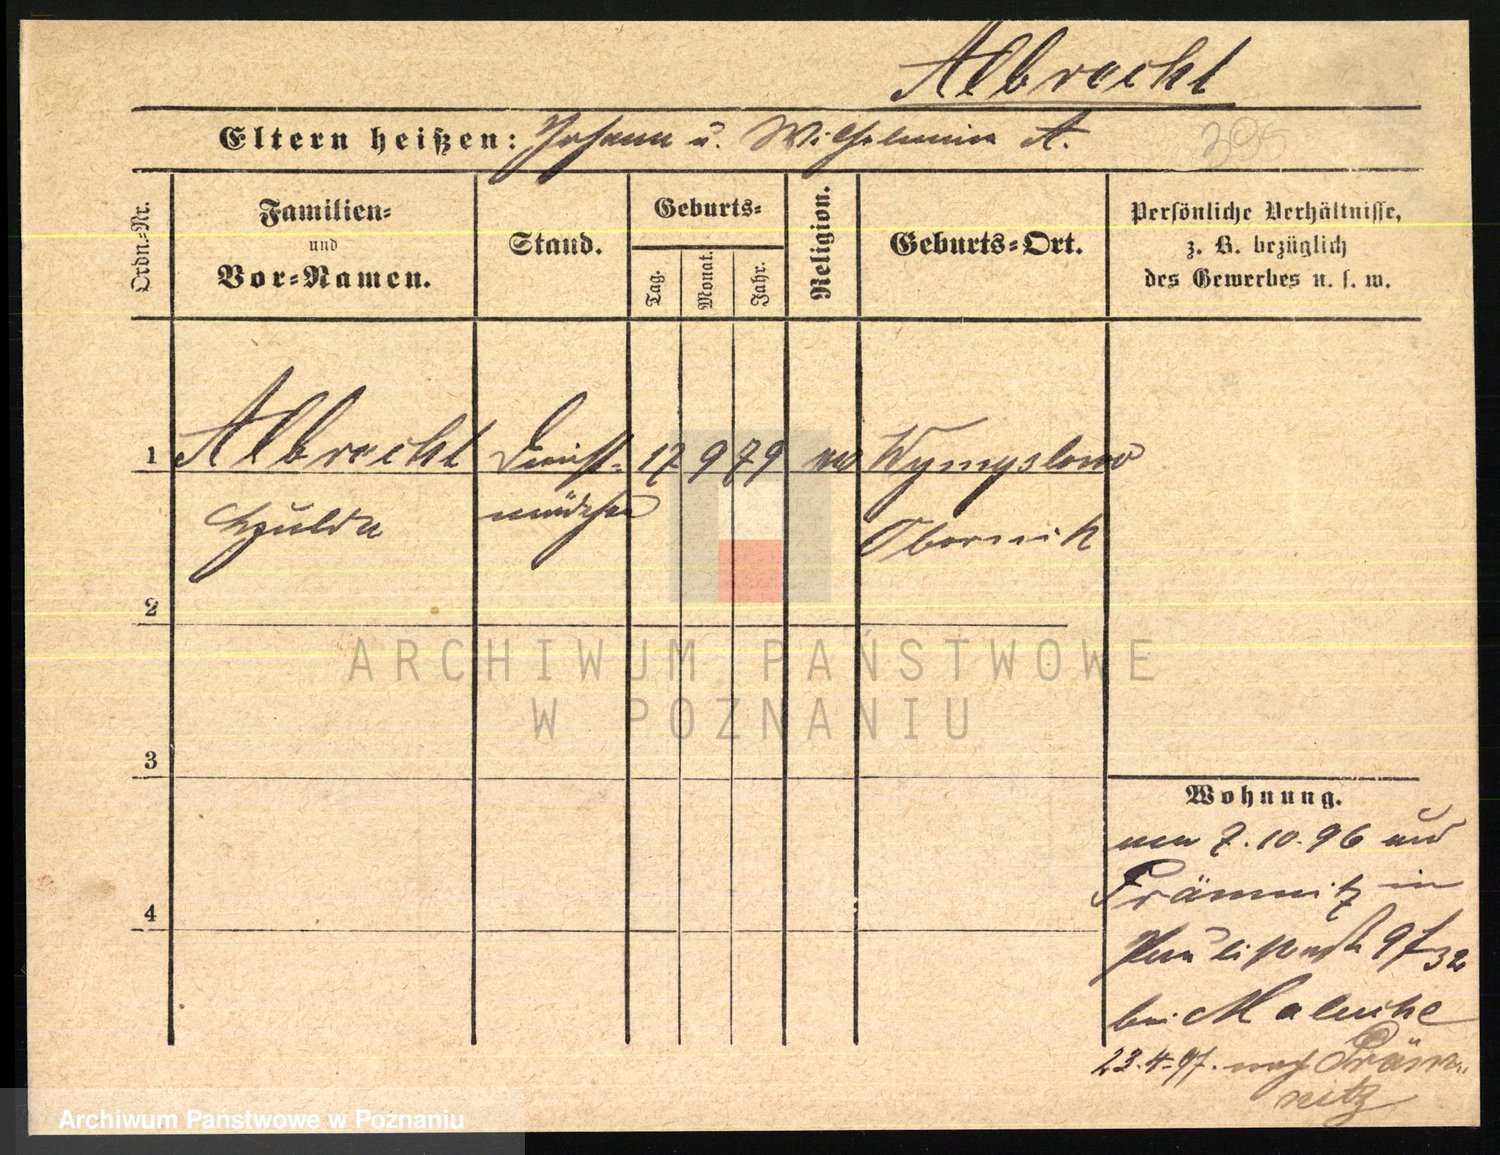 Albrecht
Eltern heißen: Johann u. Wilhelmine A.
395
Ordn.-Nr.
Familien-
und
Vor-Namen.
Stand.
Geburts-
Tag.
Monat.
Jahr.
Religion.
Geburts-Ort.
Persönliche Verhältnisse,
z. B. bezüglich
des Gewerbes u. s. w.
1 Albrecht Dienst- 17 9 79 ev Wymyslowo
Hulda mädchen Obornik
2
ARCHIWUM PAŃSTWOWE
W POZNANIU
3
Wohnung.
7.10.96 aus
Prämnitz in
4
97
32
bei Maleike
23.4.97. nach Präm-
nitz
Archiwum Państwowe w Poznaniu